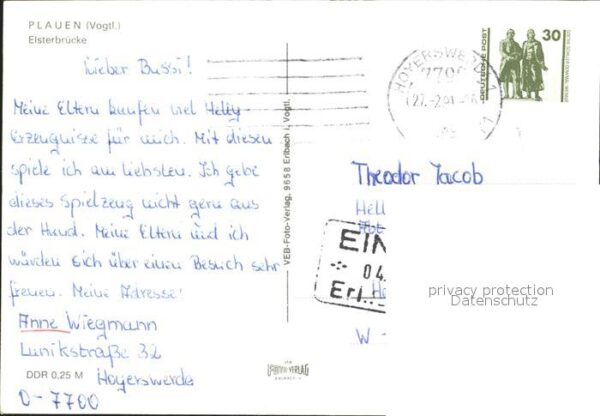 PLAUEN (Vogtl.)
Elsterbrücke
Lieber Bussi!
Meine Eltern kaufen viel Heller
Erzeugnisse für mich. Mit diesen
spiele ich am liebsten. Ich gebe
dieses Spielzeug nicht gern aus
der Hand. Meine Eltern und ich
würden sich über einen Besuch sehr
freuen. Meine Adresse:
Anne Wiegmann
Lunikstraße 32
Hoyerswerda
O-7700
DDR 0,25 M
VEB-Foto-Verlag, 9658 Erlbach i. Vogtl.
VERLAG
HOYERSWERDA 1
7700
27.-2.91
DEUTSCHE POST
30
Theodor Jacob
Hell
EIN
04.
Erl.
He
W -
privacy protection
Datenschutz